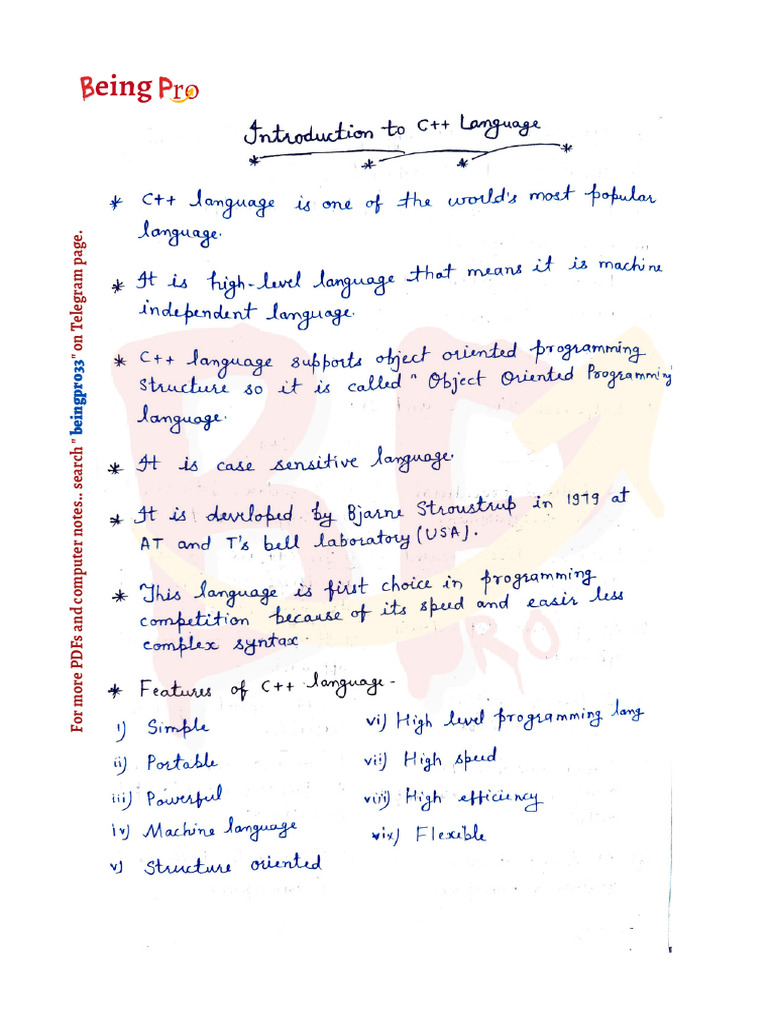 Being Pro
Introduction to C++ Language
* C++ language is one of the world's most popular
language.
* It is high-level language that means it is machine
independent language.
* C++ language supports object oriented programming
Structure so it is called " Object Oriented Programming
language.
* It is case sensitive language.
* It is developed by Bjarne Stroustrup in 1979 at
AT and T's bell laboratory (USA).
* This language is first choice in programming
competition because of its speed and easir less
complex syntax.
* Features of C++ language-
i) Simple
ii) Portable
iii) Powerful
iv) Machine language
v) Structure oriented
vi) High level programming lang
vii) High speed
viii) High efficiency
ix) Flexible
For more PDFs and computer notes.. search " beingpro33" on Telegram page.
BP
PRO